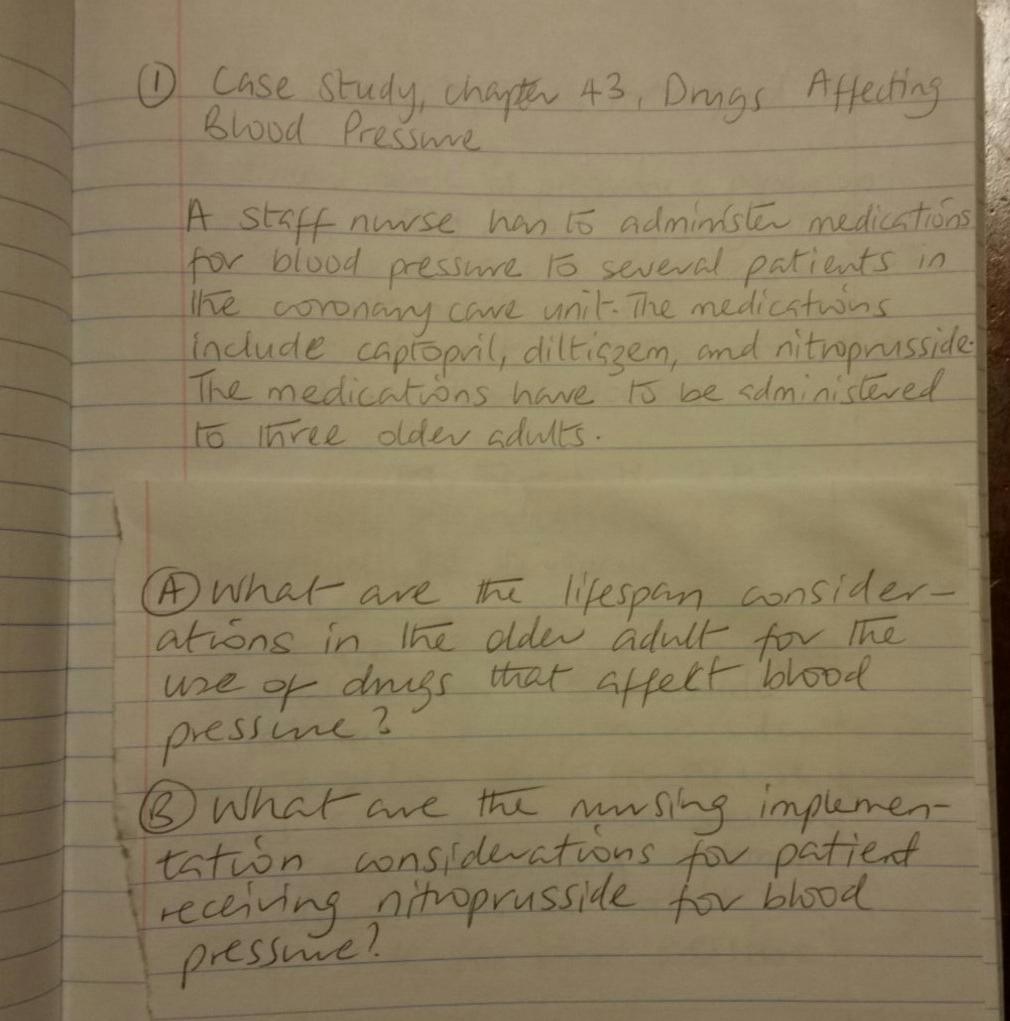 ① Case Study, chapter 43, Drugs Affecting
Blood Pressure
A staff nurse has to administer medications
for blood pressure to several patients in
the coronary care unit. The medications
include captopril, diltiazem, and nitroprusside.
The medications have to be administered
to three older adults.
Ⓐ What are the lifespan consider-
ations in the older adult for the
use of drugs that affect blood
pressure?
Ⓑ What are the nursing implemen-
tation considerations for patient
receiving nitroprusside for blood
pressure?